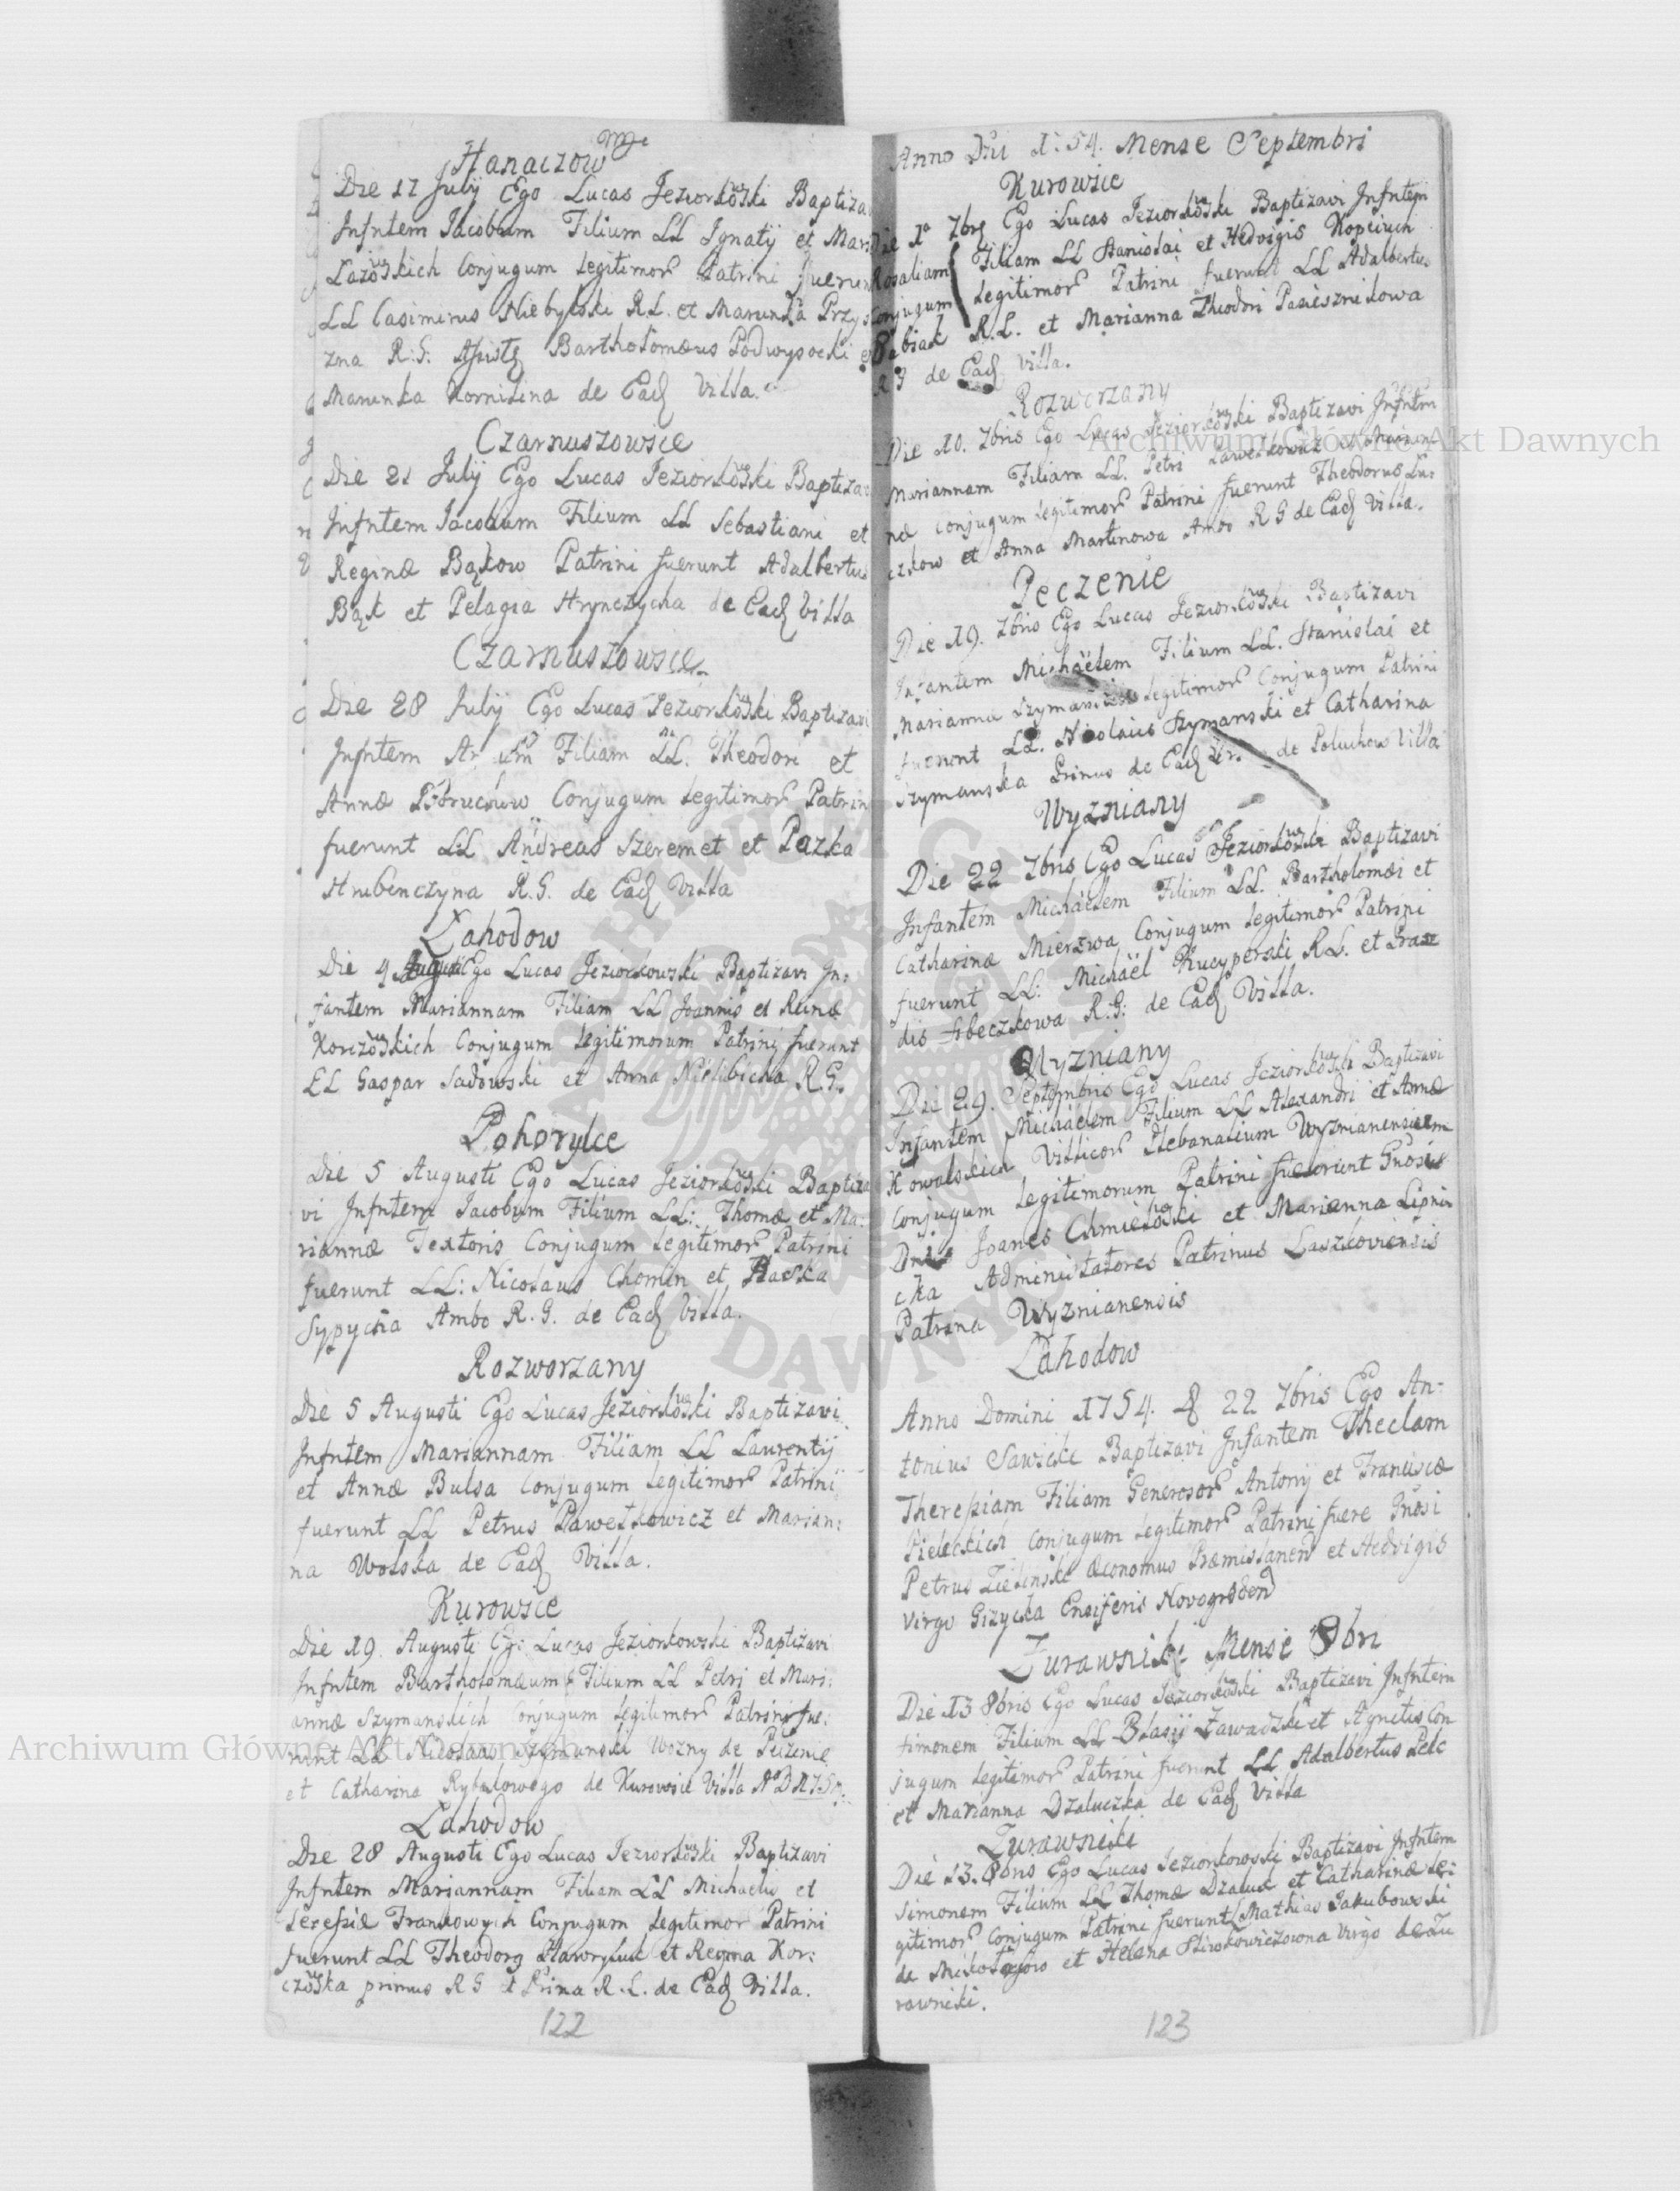 Hanaczow
Die 17 July Ego Lucas Jeziorkowski Baptiza
Infntem Jacobum Filium LL Ignatij et Mari
Lazowskich Conjugum Legitimor Patrini fuerun
LL Casimirus Niebylski R.L. et Marunka Przys
zna R:G: Bartholomæus Podwysocki
Marunka Kornilina de Ead Villa.
Czarnuszowice
Die 21 July Ego Lucas Jeziorkowski Baptizav
Infntem Jacobum Filium LL Sebastiani et
Reginæ Bąkow Patrini fuerunt Adalbertus
Bąk et Pelagia Hrynczycha de Ead Villa
Czarnuszowice
Die 28 July Ego Lucas Jeziorkowski Baptizavi
Infntem Filiam LL. Theodori et
Annæ Conjugum Legitimor Patrin
fuerunt LL Andreas Szeremet et Pazka
Hrubenczyna R.G. de Ead Villa
Lahodow
Die 4 Augusti Ego Lucas Jeziorkowski Baptizavi In:
fantem Mariannam Filiam LL Joannis et
Korczowskich Conjugum Legitimorum Patrini fuerunt
LL Gaspar Sadowski et Anna R.G.
Pohorylce
Die 5 Augusti Ego Lucas Jeziorkowski Baptiza
vi Infntem Jacobum Filium LL: Thomæ et Ma:
riannæ Textoris Conjugum Legitimor Patrini
fuerunt LL: Nicolaus Chomin et
Sypycha Ambo R.G. de Ead Villa.
Rozworzany
Die 5 Augusti Ego Lucas Jeziorkowski Baptizavi
Infntem Mariannam Filiam LL Laurentij
et Annæ Bulsa Conjugum Legitimor Patrini
fuerunt LL Petrus Pawelkowicz et Marian:
na Wolska de Ead Villa.
Kurowice
Die 19 Augusti Ego Lucas Jeziorkowski Baptizavi
Infntem Bartholomæum Filium LL Petri et Mari:
annæ Szymanskich Conjugum Legitimor Patrini fue:
runt LL Nicolaus Szymanski Wozny de Peczenie
et Catharina Rybakowego de Kurowice Villa
Lahodow
Die 28 Augusti Ego Lucas Jeziorkowski Baptizavi
Infntem Mariannam Filiam LL Michaelis et
Teresiæ Frankowych Conjugum Legitimor Patrini
fuerunt LL Theodorg Hawryluk et Regina Kor:
czowska primus R G et R.L. de Ead Villa.
122
Anno Dni 1:54. Mense Septembri
Kurowice
Die 1a 7bris Ego Lucas Jeziorkowski Baptizavi Infntem
Rosaliam Filiam LL Stanislai et Hedvigis Kopciuch
Conjugum Legitimor Patrini fuerunt LL Adalbertus
Babiak R.L. et Marianna Theodori Pasiesznikowa
R G de Ead Villa.
Rozworzany
Die 10. 7bris Ego Lucas Jeziorkowski Baptizavi Infntem
Mariannam Filiam LL. Petri Pawelkowicz et Marian:
næ Conjugum Legitimor Patrini fuerunt Theodorus Lu:
czkow et Anna Martinowa Ambo R G de Ead Villa.
Peczenie
Die 19. 7bris Ego Lucas Jeziorkowski Baptizavi
Infantem Michaëlem Filium LL. Stanislai et
Marianna Legitimor Conjugum Patrini
fuerunt LL. Nicolaus Szymanski et Catharina
Szymanska Primus de Ead de Poluchow Villa
Wyzniany
Die 22 7bris Ego Lucas Jeziorkowski Baptizavi
Infantem Michaëlem Filium LL. Bartholomæi et
Catharinæ Mierzwa Conjugum Legitimor Patrini
fuerunt LL: Michaël Kucyperski R.L. et
R.G: de Ead Villa.
Wyzniany
Die 29. Septembris Ego Lucas Jeziorkowski Baptizavi
Infantem Michaelem Filium LL Alexandri et Annæ
Kowalskich Villicor Plebanalium Wyznianensium
Conjugum Legitimorum Patrini fuerunt Gnosis
Dnis Joanes Chmielowski et Marianna Lipnic
cka Administatores Patrinus Laszkoviensis
Patrina Wyznianensis
Lahodow
Anno Domini 1754. 22 7bris Ego An=
tonius Sawicki Baptizavi Infantem Theclam
Theresiam Filiam Generosor Antonij et Franciscæ
Pieleckich Conjugum Legitimor Patrini fuere Gnosi
Petrus Zielinski Œconomus Præmislanen et Hedvigis
Virgo Gizycka Ensiferis Novogroden
Zurawniki Mense 8bri
Die 13 8bris Ego Lucas Jeziorkowski Baptizavi Infntem
Simonem Filium LL Blasij Zawadzki et Agnetis Con
jugum Legitimor Patrini fuerunt LL Adalbertus Pelc
et Marianna Dzaluczka de Ead Villa
Zurawniki
Die 13. 8bris Ego Lucas Jeziorkowski Baptizavi Infntem
Simonem Filium LL Thomæ Dzaluk et Catharinæ Le:
gitimor Conjugum Patrini fuerunt Mathias Jakubowski
de et Helena Virgo de Zu
rawniki.
123
Archiwum Główne Akt Dawnych
Archiwum Główne Akt Dawnych
ARCHIWUM GŁÓWNE AKT DAWNYCH